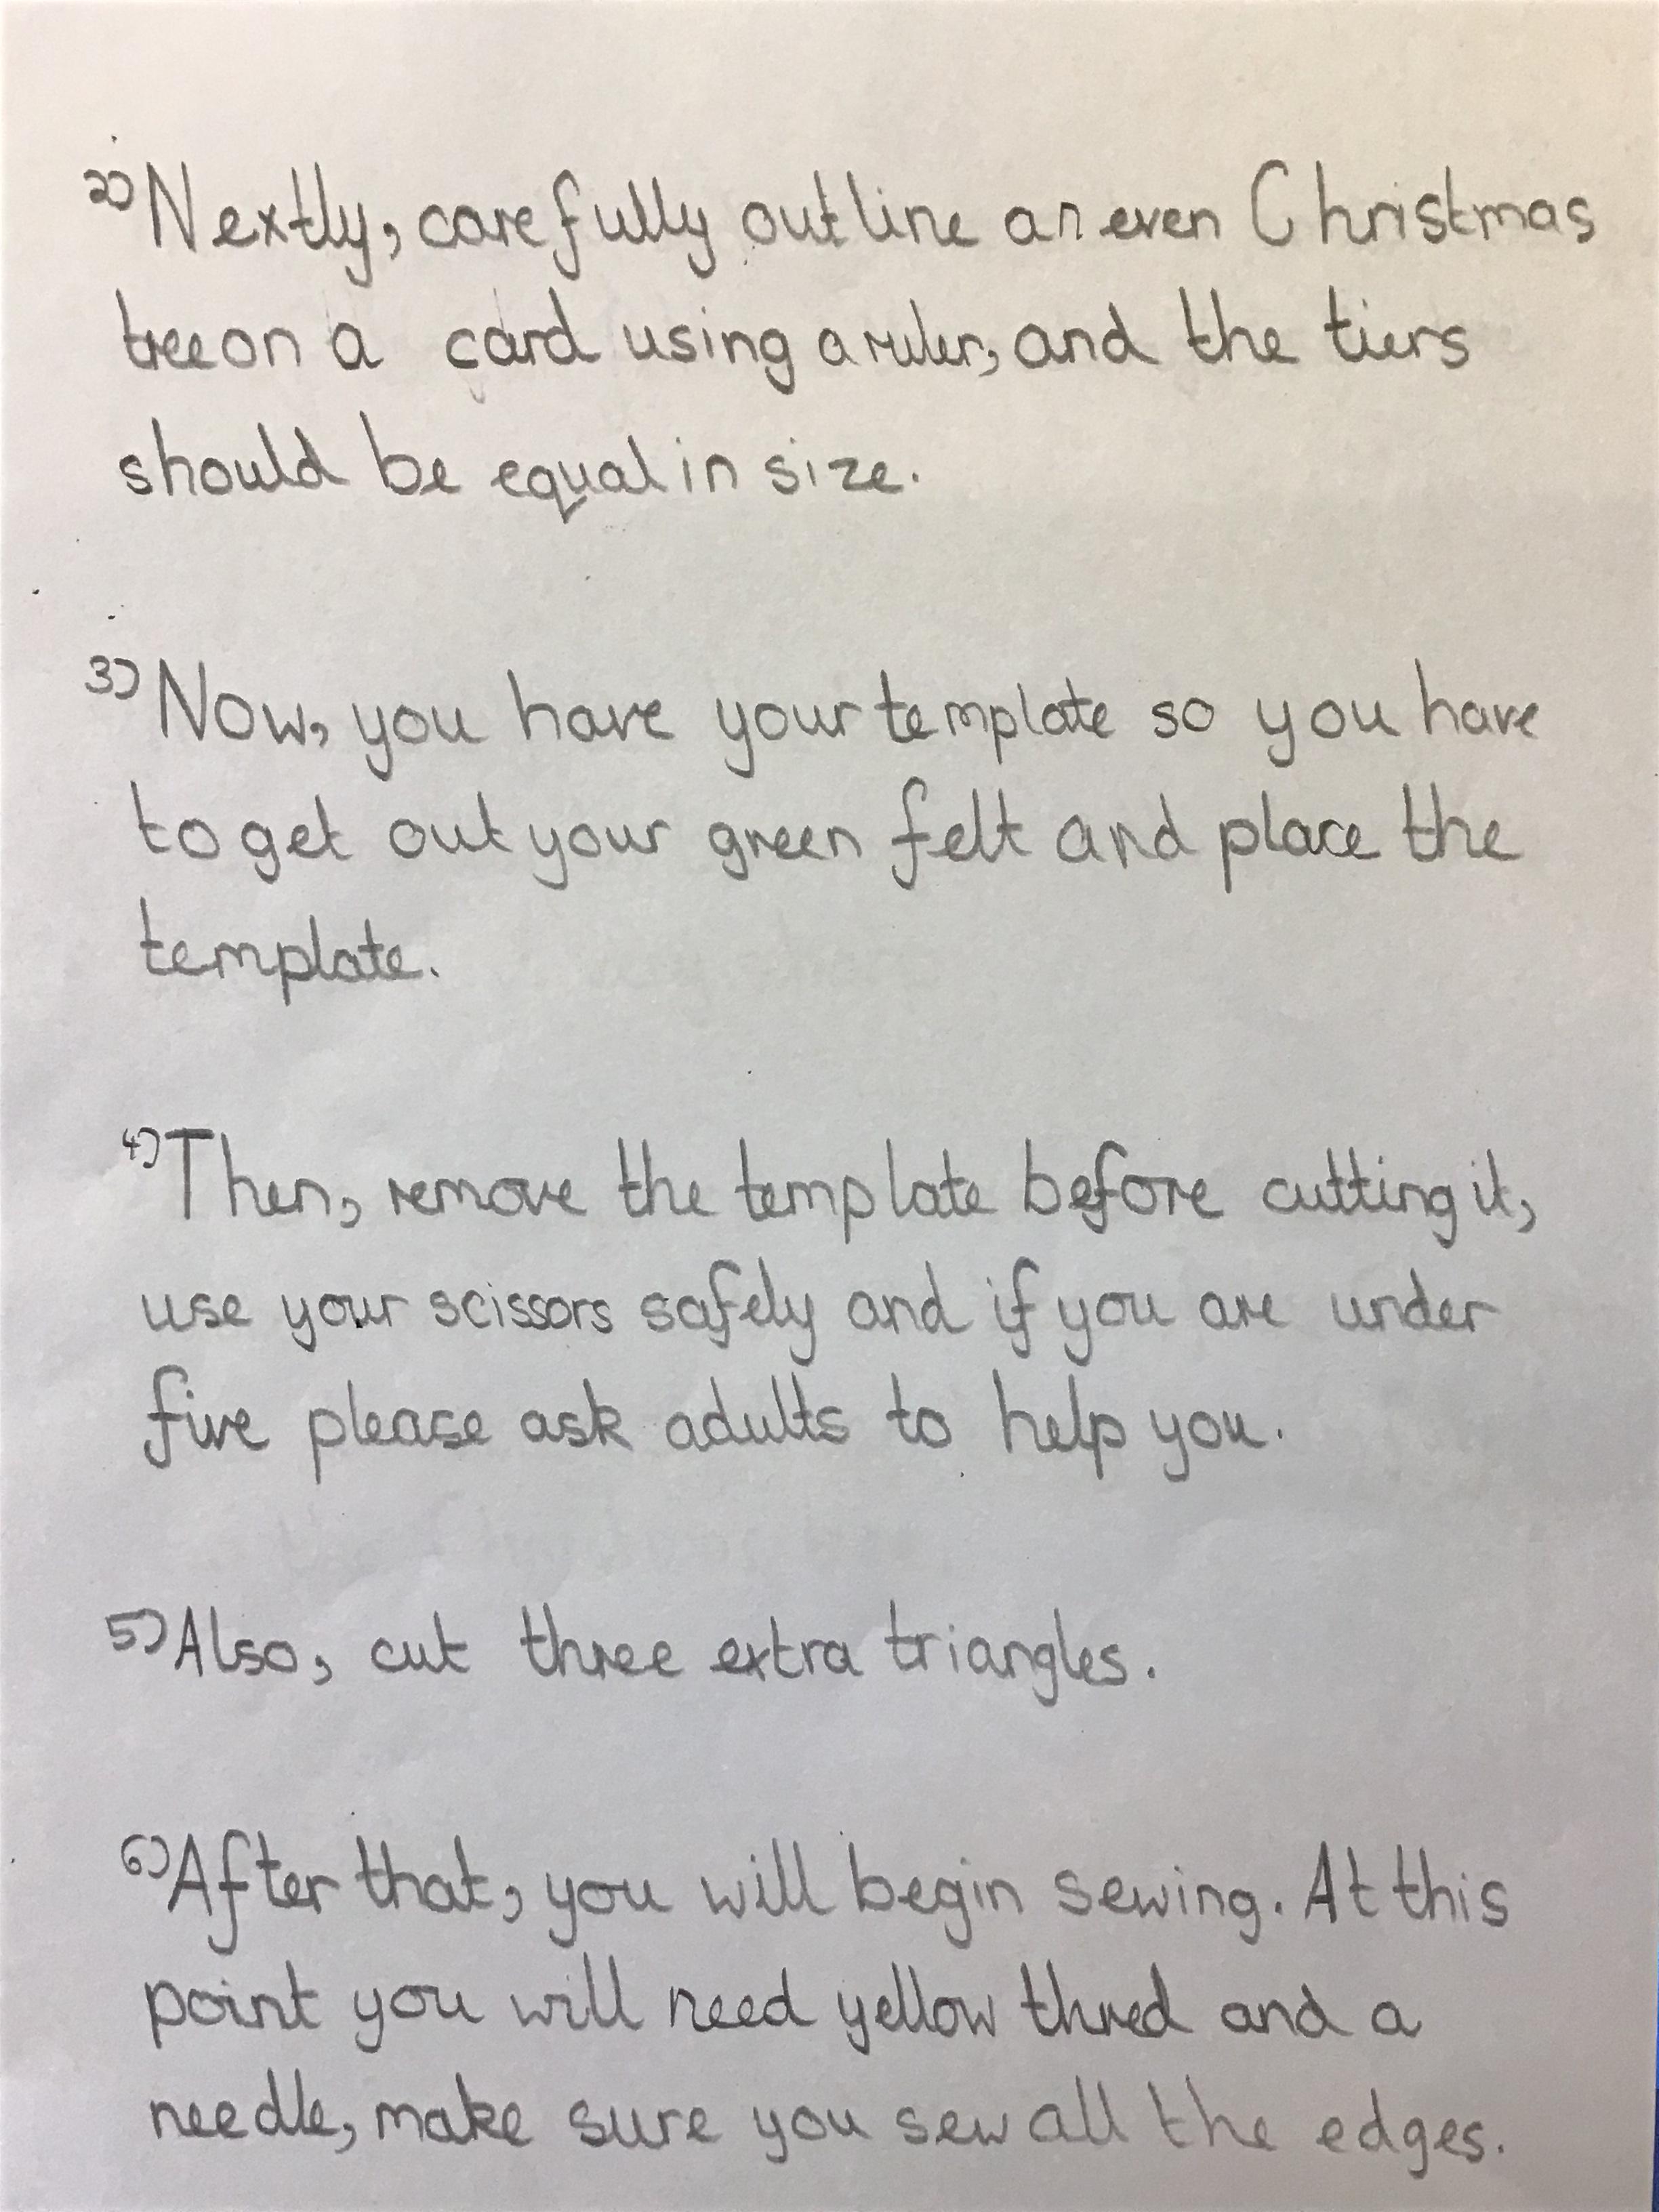 2) Nextly, carefully outline an even Christmas
tree on a card using a ruler, and the tiers
should be equal in size.
3) Now, you have your template so you have
to get out your green felt and place the
template.
4) Then, remove the template before cutting it,
use your scissors safely and if you are under
five please ask adults to help you.
5) Also, cut three extra triangles.
6) After that, you will begin sewing. At this
point you will need yellow thred and a
needle, make sure you sew all the edges.